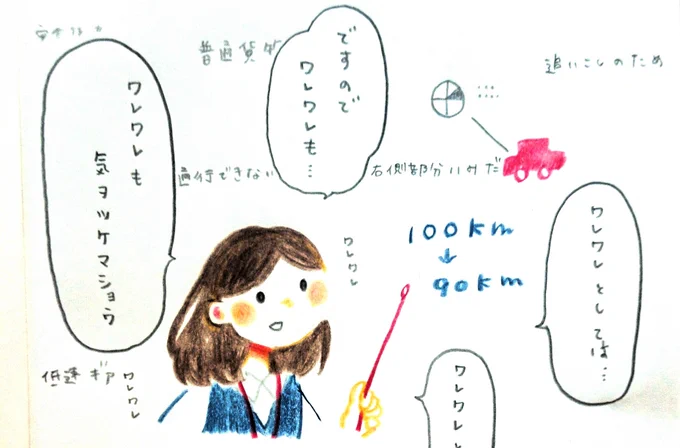 普通貨物
追いこしのため
ですので
ワレワレも…
ワレワレも
気ヲツケマショウ
通行できない
右側部分はみだ
100km
↓
90km
ワレワレ
ワレワレとしては…
低速ギア
ワレワレ
ワレワレと